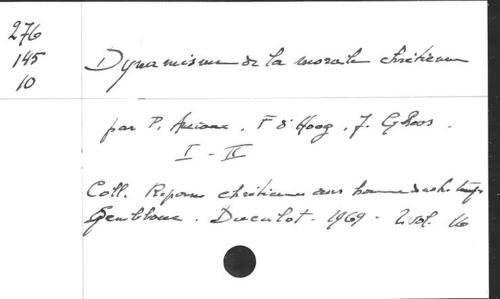 276
145
10
Dynamisme de la morale chrétienne
par P. Anciaux, F. d'Hoog, J. Ghoos.
I - II
Coll. Réponses chrétiennes aux hommes de notre temps
Gembloux. Duculot - 1969 - 2 vol. 16